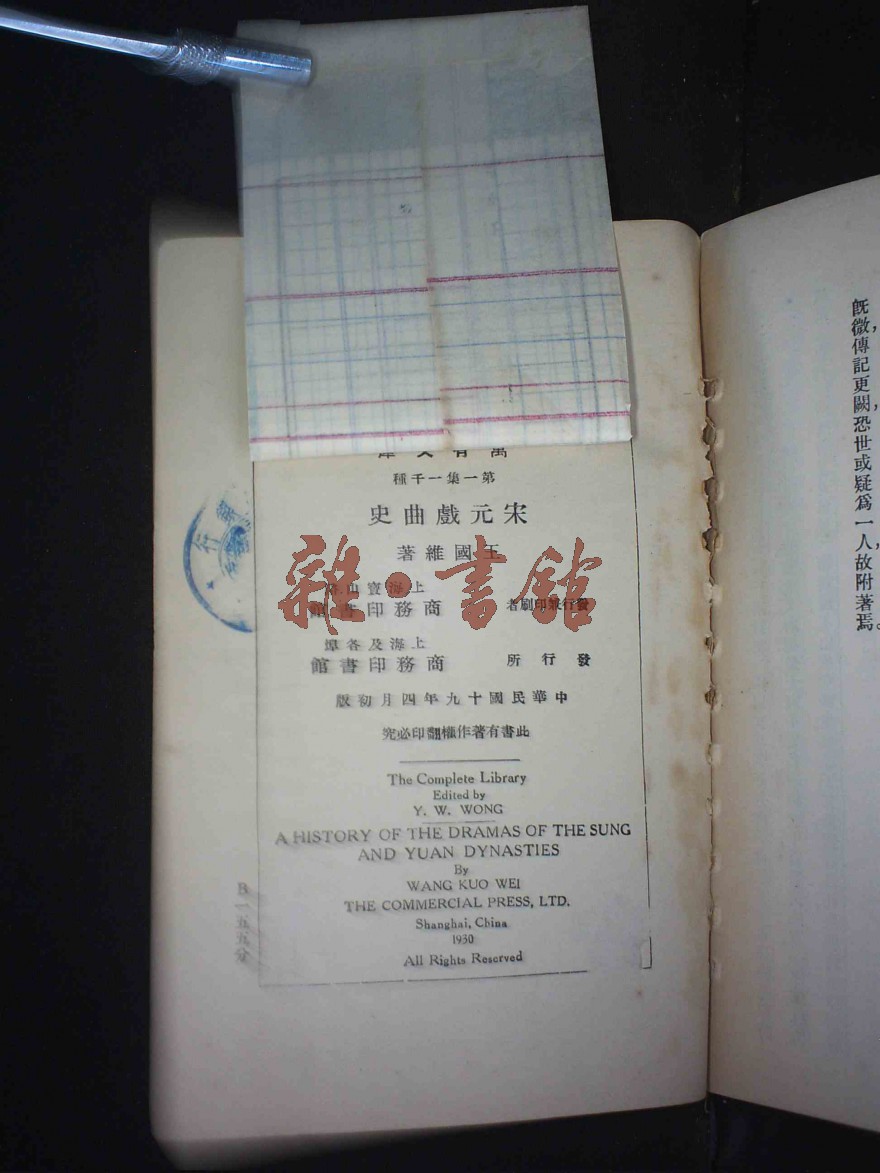 萬有文庫
第一集一千種
宋元戲曲史
王國維著
發行兼印刷者
上海寶山路
商務印書館
發行所
上海及各埠
商務印書館
中華民國十九年四月初版
此書有著作權翻印必究
The Complete Library
Edited by
Y. W. WONG
A HISTORY OF THE DRAMAS OF THE SUNG
AND YUAN DYNASTIES
By
WANG KUO WEI
THE COMMERCIAL PRESS, LTD.
Shanghai, China
1930
All Rights Reserved
B一五五分
既微，傳記更闕，恐世或疑爲一人，故附著焉。
雜·書館